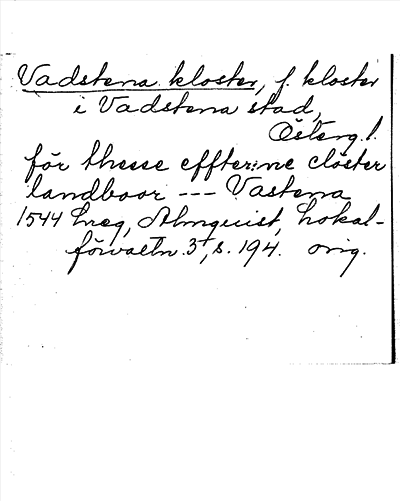 Vadstena kloster, f. kloster
i Vadstena stad,
Österg.l.
för thesse effter:ne clöster
landboor --- Vastena
1544 hreg, Almquist, Lokal-
förvaltn. 3, s. 194. orig.